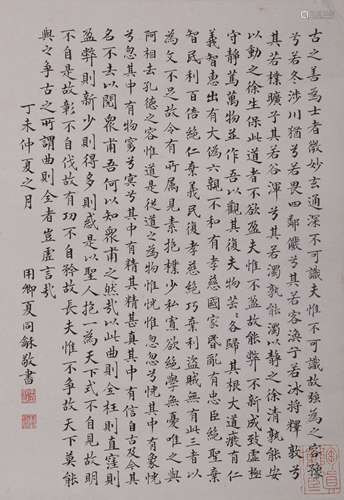 古之善為士者微妙玄通深不可識夫惟不可識故強為之容豫
兮若冬涉川猶兮若畏四鄰儼兮其若容渙兮若冰將釋敦兮
其若樸曠兮其若谷渾兮其若濁孰能濁以靜之徐清孰能安
以動之徐生保此道者不欲盈夫惟不盈故能弊不新成致虛極
守靜篤萬物並作吾以觀其復夫物芸芸各歸其根大道癈有仁
義智惠出有大偽六親不和有孝慈國家昏亂有忠臣絕聖棄
智民利百倍絕仁棄義民復孝慈絕巧棄利盜賊無有此三者以
為文不足故令有所屬見素抱樸少私寡欲絕學無憂唯之與
阿相去孔德之容惟道是從道之為物惟恍惟忽忽兮恍其中有象恍
兮忽其中有物窈兮冥兮其中有精其精甚真其中有信自古及今其
名不去以閱眾甫吾何以知眾甫之然哉以此曲則全枉則直窪則
盈弊則新少則得多則惑是以聖人抱一為天下式不自見故明
不自是故彰不自伐故有功不自矜故長夫惟不爭故天下莫能
與之爭古之所謂曲則全者豈虛言哉
丁未仲夏之月
用卿夏同龢敬書